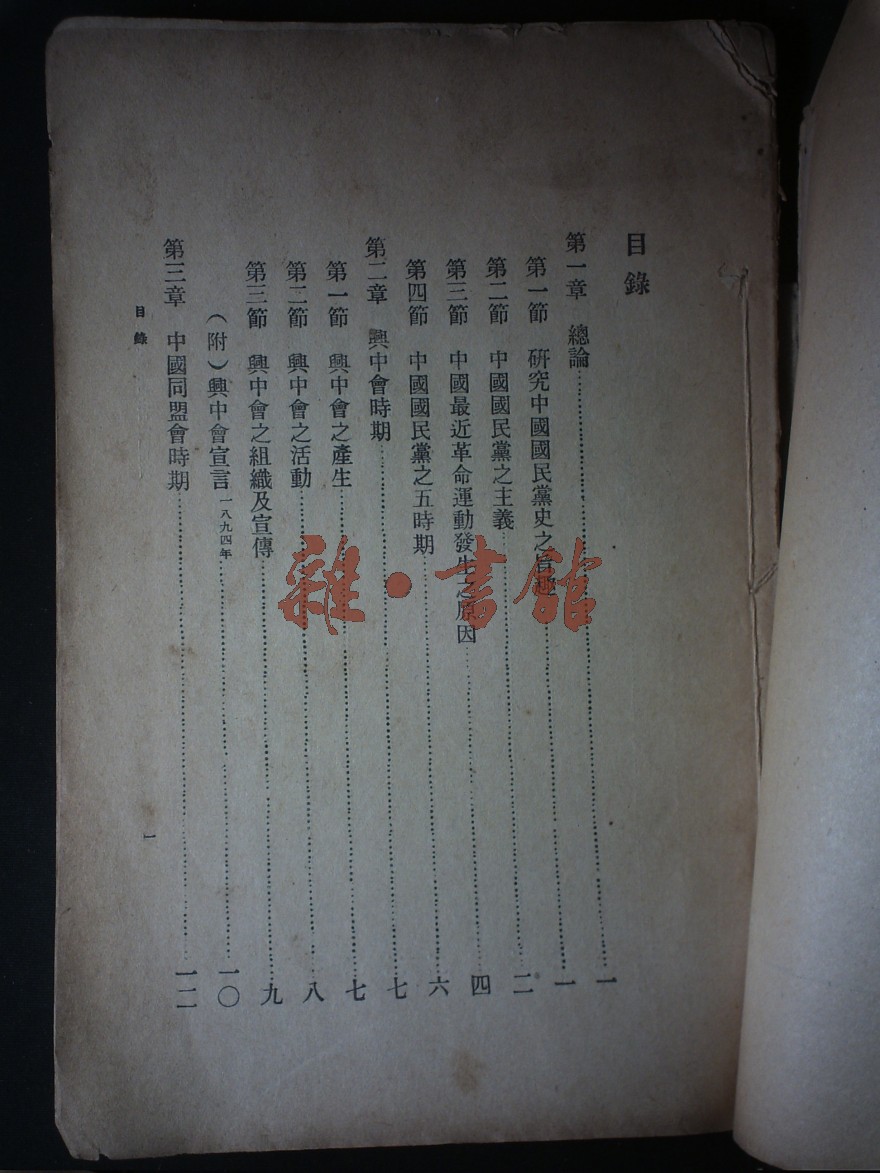 目錄
第一章 總論……一
第一節 研究中國國民黨史之旨趣……一
第二節 中國國民黨之主義……二
第三節 中國最近革命運動發生之原因……四
第四節 中國國民黨之五時期……六
第二章 興中會時期……七
第一節 興中會之產生……七
第二節 興中會之活動……八
第三節 興中會之組織及宣傳……九
（附）興中會宣言一八九四年……一〇
第三章 中國同盟會時期……一二
目錄
一
雜·書館